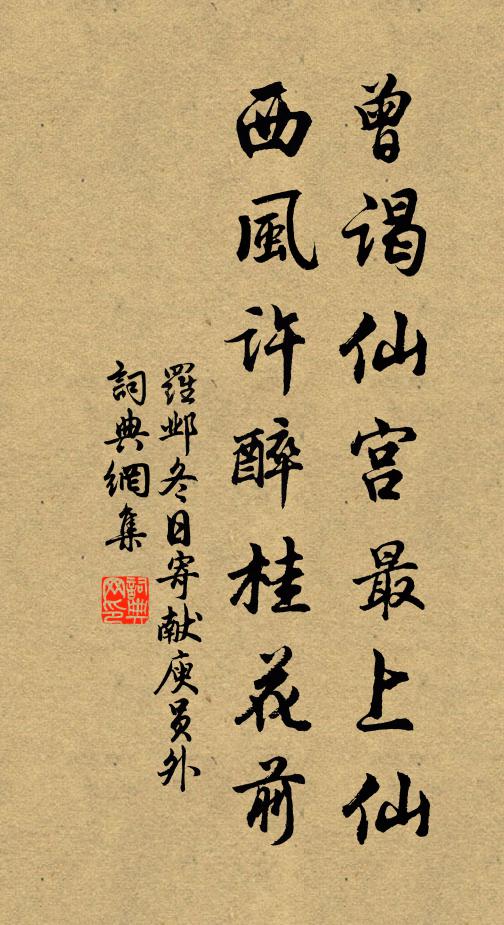 曾谒仙宫最上仙
西風许醉桂花前
羅邺冬日寄献庾员外
詞典網集
詞典網印